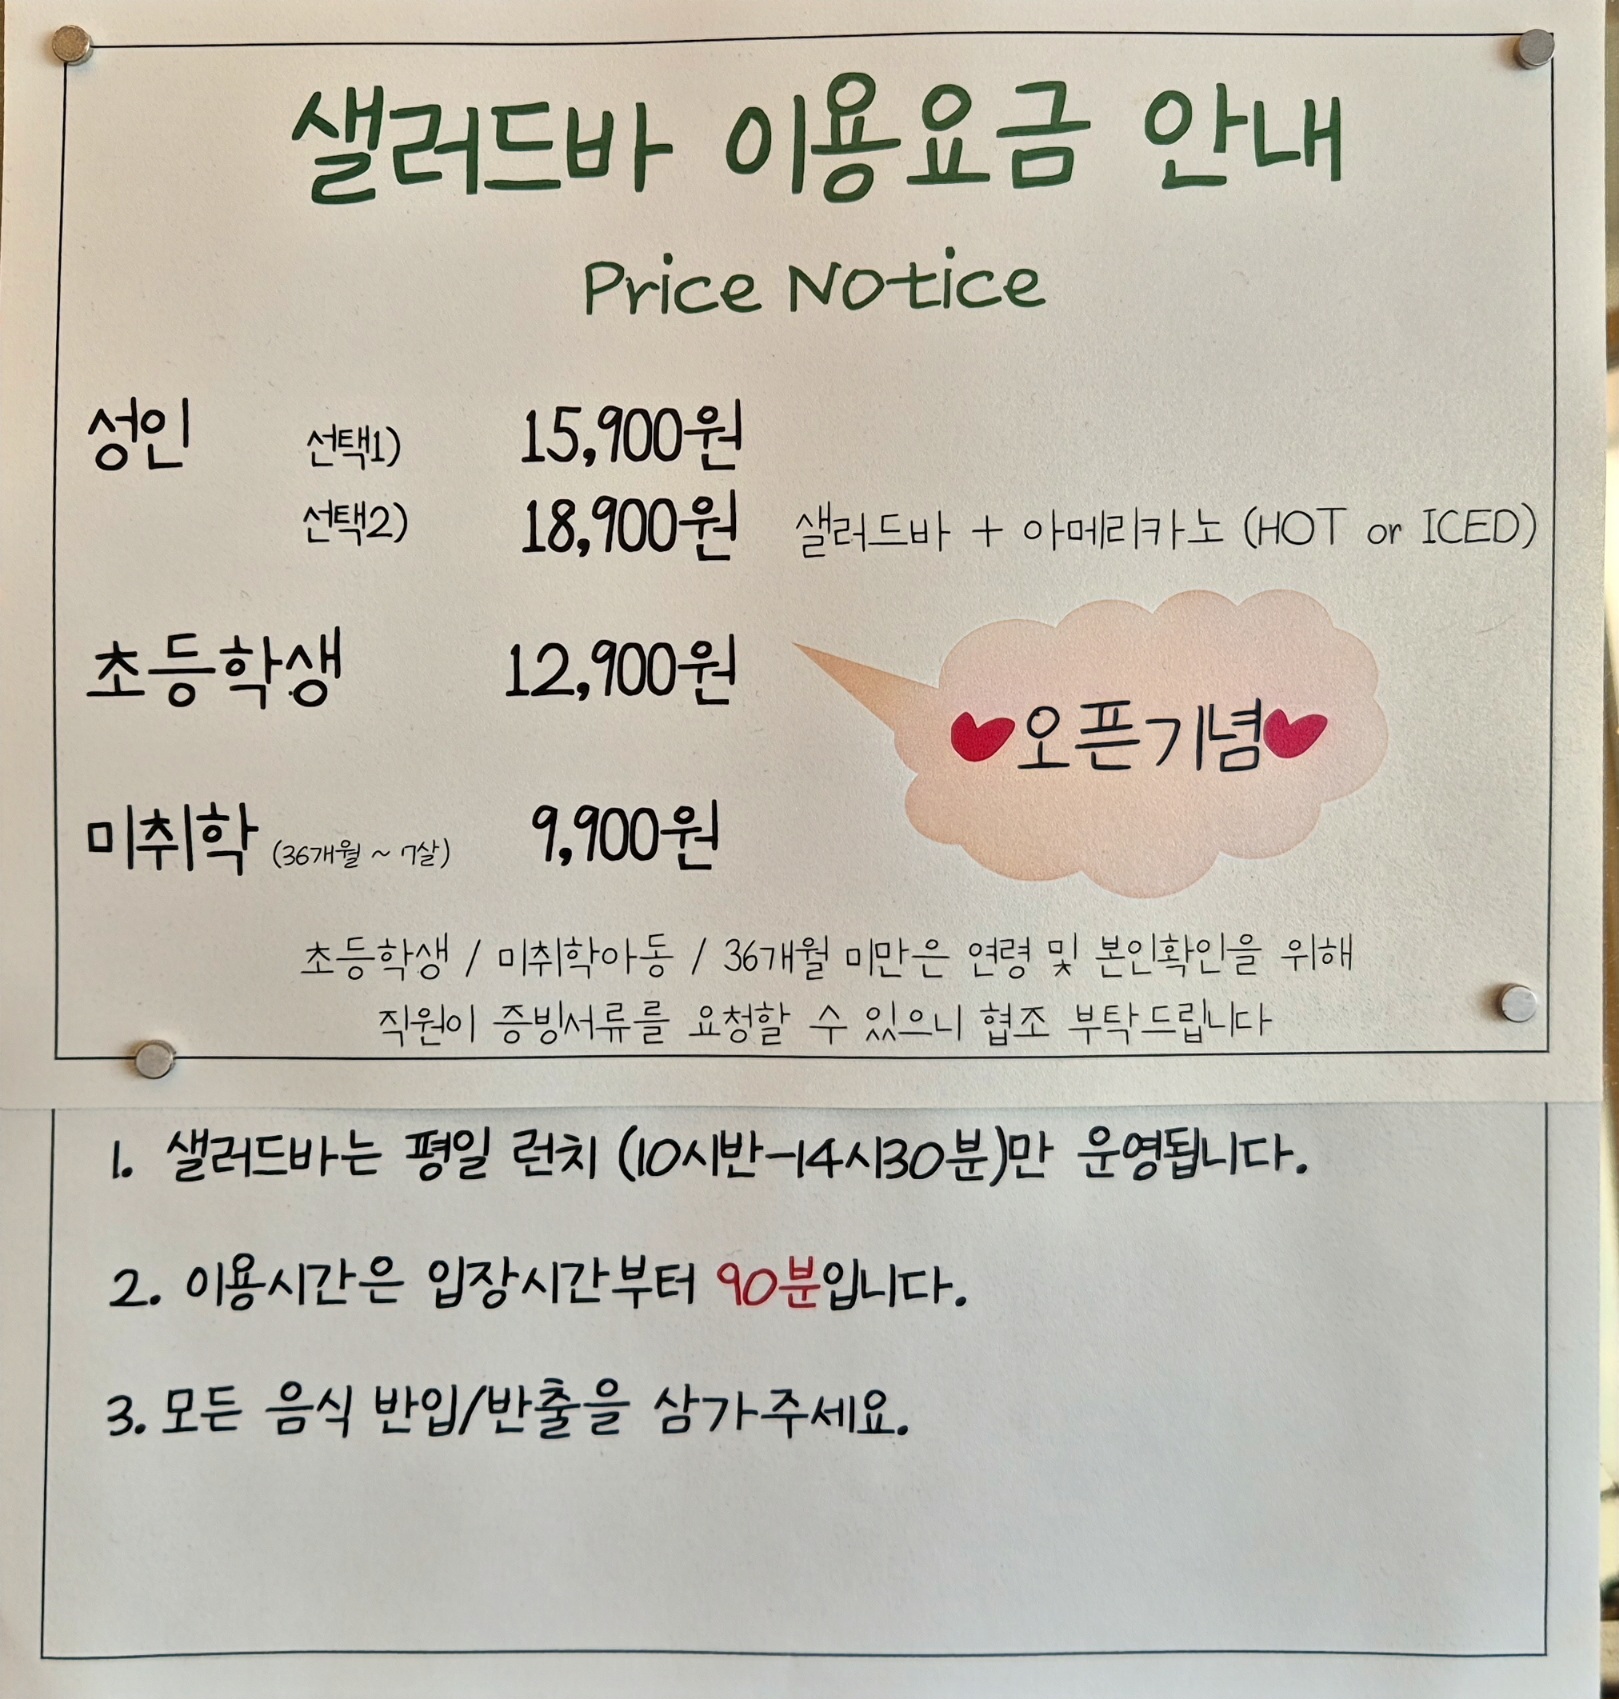 샐러드바 이용요금 안내
Price Notice
성인 선택1) 15,900원
선택2) 18,900원 샐러드바 + 아메리카노 (HOT or ICED)
초등학생 12,900원
♥오픈기념♥
미취학 (36개월 ~ 7살) 9,900원
초등학생 / 미취학아동 / 36개월 미만은 연령 및 본인확인을 위해
직원이 증빙서류를 요청할 수 있으니 협조 부탁드립니다
1. 샐러드바는 평일 런치 (10시반-14시30분)만 운영됩니다.
2. 이용시간은 입장시간부터 90분입니다.
3. 모든 음식 반입/반출을 삼가주세요.